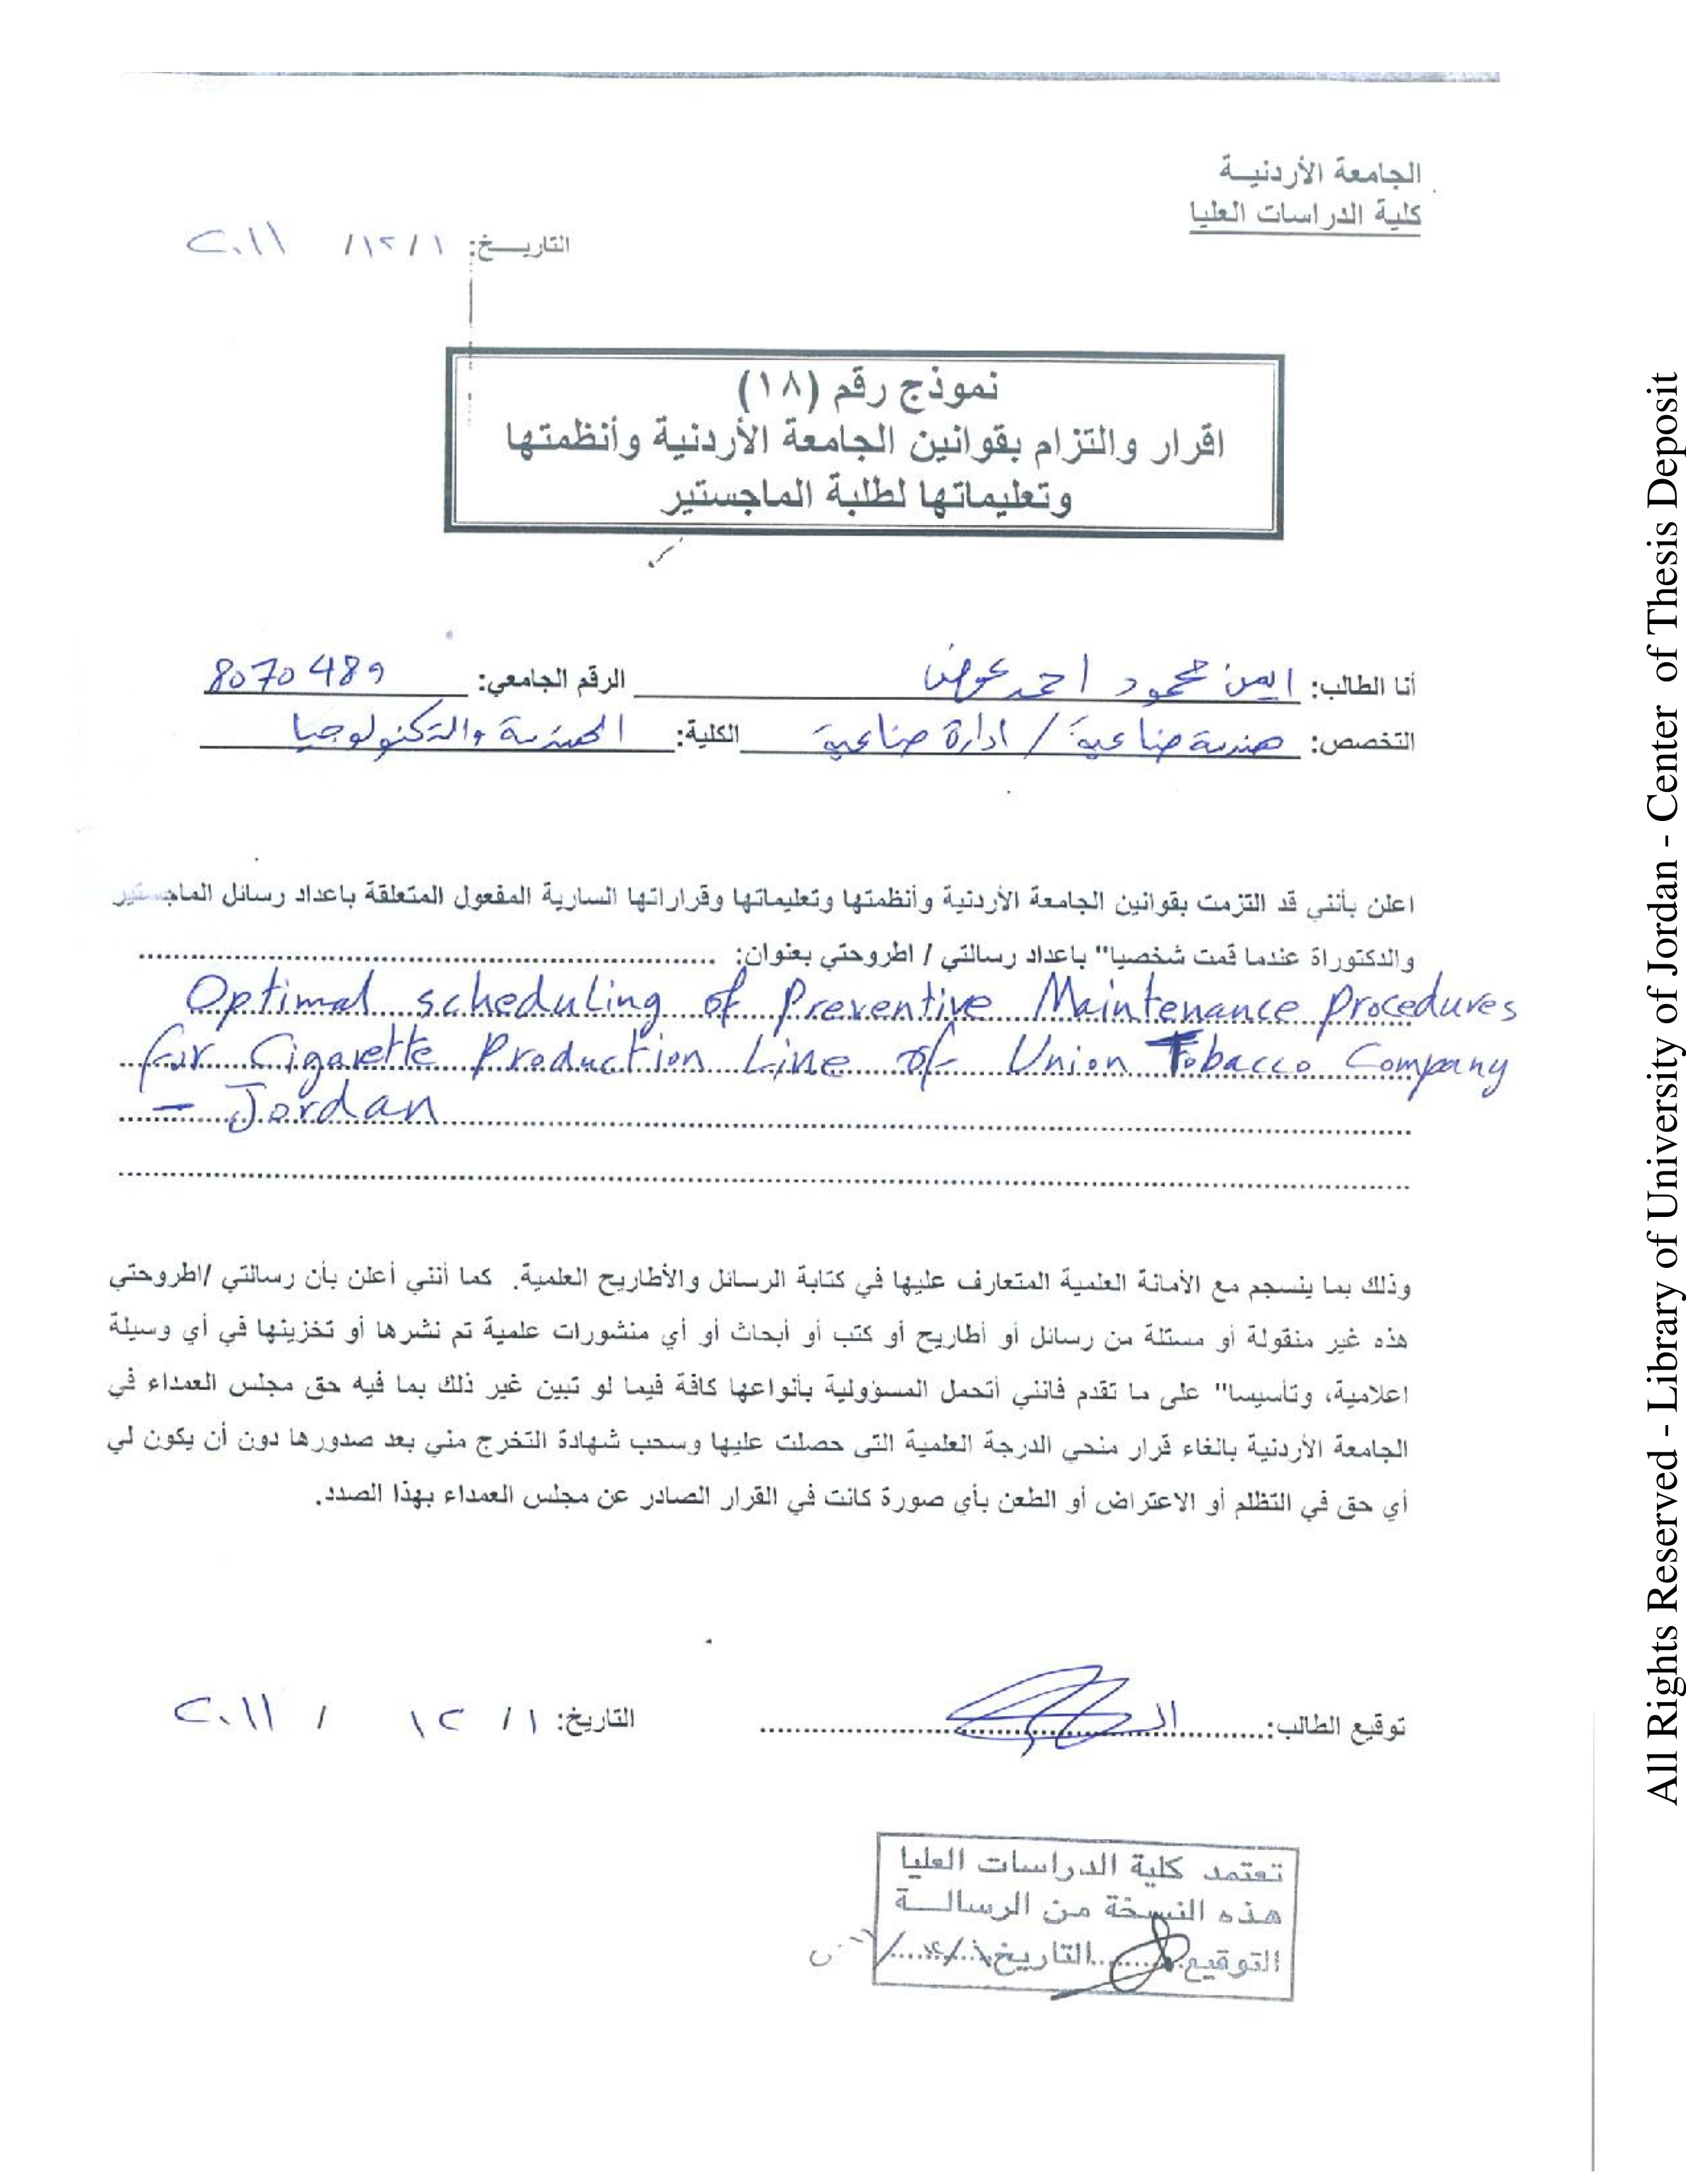 الجامعة الأردنيـة
كلية الدراسات العليا
التاريـــخ: ١ /١٢/ ٢٠١١
نموذج رقم (١٨)
اقرار والتزام بقوانين الجامعة الأردنية وأنظمتها
وتعليماتها لطلبة الماجستير
أنا الطالب: ايمن محمود احمد عوض الرقم الجامعي: 8070489
التخصص: هندسة صناعية / ادارة صناعية الكلية: الهندسة والتكنولوجيا
اعلن بأنني قد التزمت بقوانين الجامعة الأردنية وأنظمتها وتعليماتها وقراراتها السارية المفعول المتعلقة باعداد رسائل الماجستير
والدكتوراة عندما قمت شخصيا" باعداد رسالتي / اطروحتي بعنوان:
Optimal scheduling of Preventive Maintenance Procedures
for Cigarette Production Line of Union Tobacco Company
- Jordan
وذلك بما ينسجم مع الأمانة العلمية المتعارف عليها في كتابة الرسائل والأطاريح العلمية. كما أنني أعلن بأن رسالتي /اطروحتي
هذه غير منقولة أو مستلة من رسائل أو أطاريح أو كتب أو أبحاث أو أي منشورات علمية تم نشرها أو تخزينها في أي وسيلة
اعلامية، وتأسيسا" على ما تقدم فانني أتحمل المسؤولية بأنواعها كافة فيما لو تبين غير ذلك بما فيه حق مجلس العمداء في
الجامعة الأردنية بالغاء قرار منحي الدرجة العلمية التى حصلت عليها وسحب شهادة التخرج مني بعد صدورها دون أن يكون لي
أي حق في التظلم أو الاعتراض أو الطعن بأي صورة كانت في القرار الصادر عن مجلس العمداء بهذا الصدد.
توقيع الطالب: التاريخ: ١ / ١٢ / ٢٠١١
تعتمد كلية الدراسات العليا
هذه النسخة من الرسالــة
التوقيع التاريخ
All Rights Reserved - Library of University of Jordan - Center of Thesis Deposit